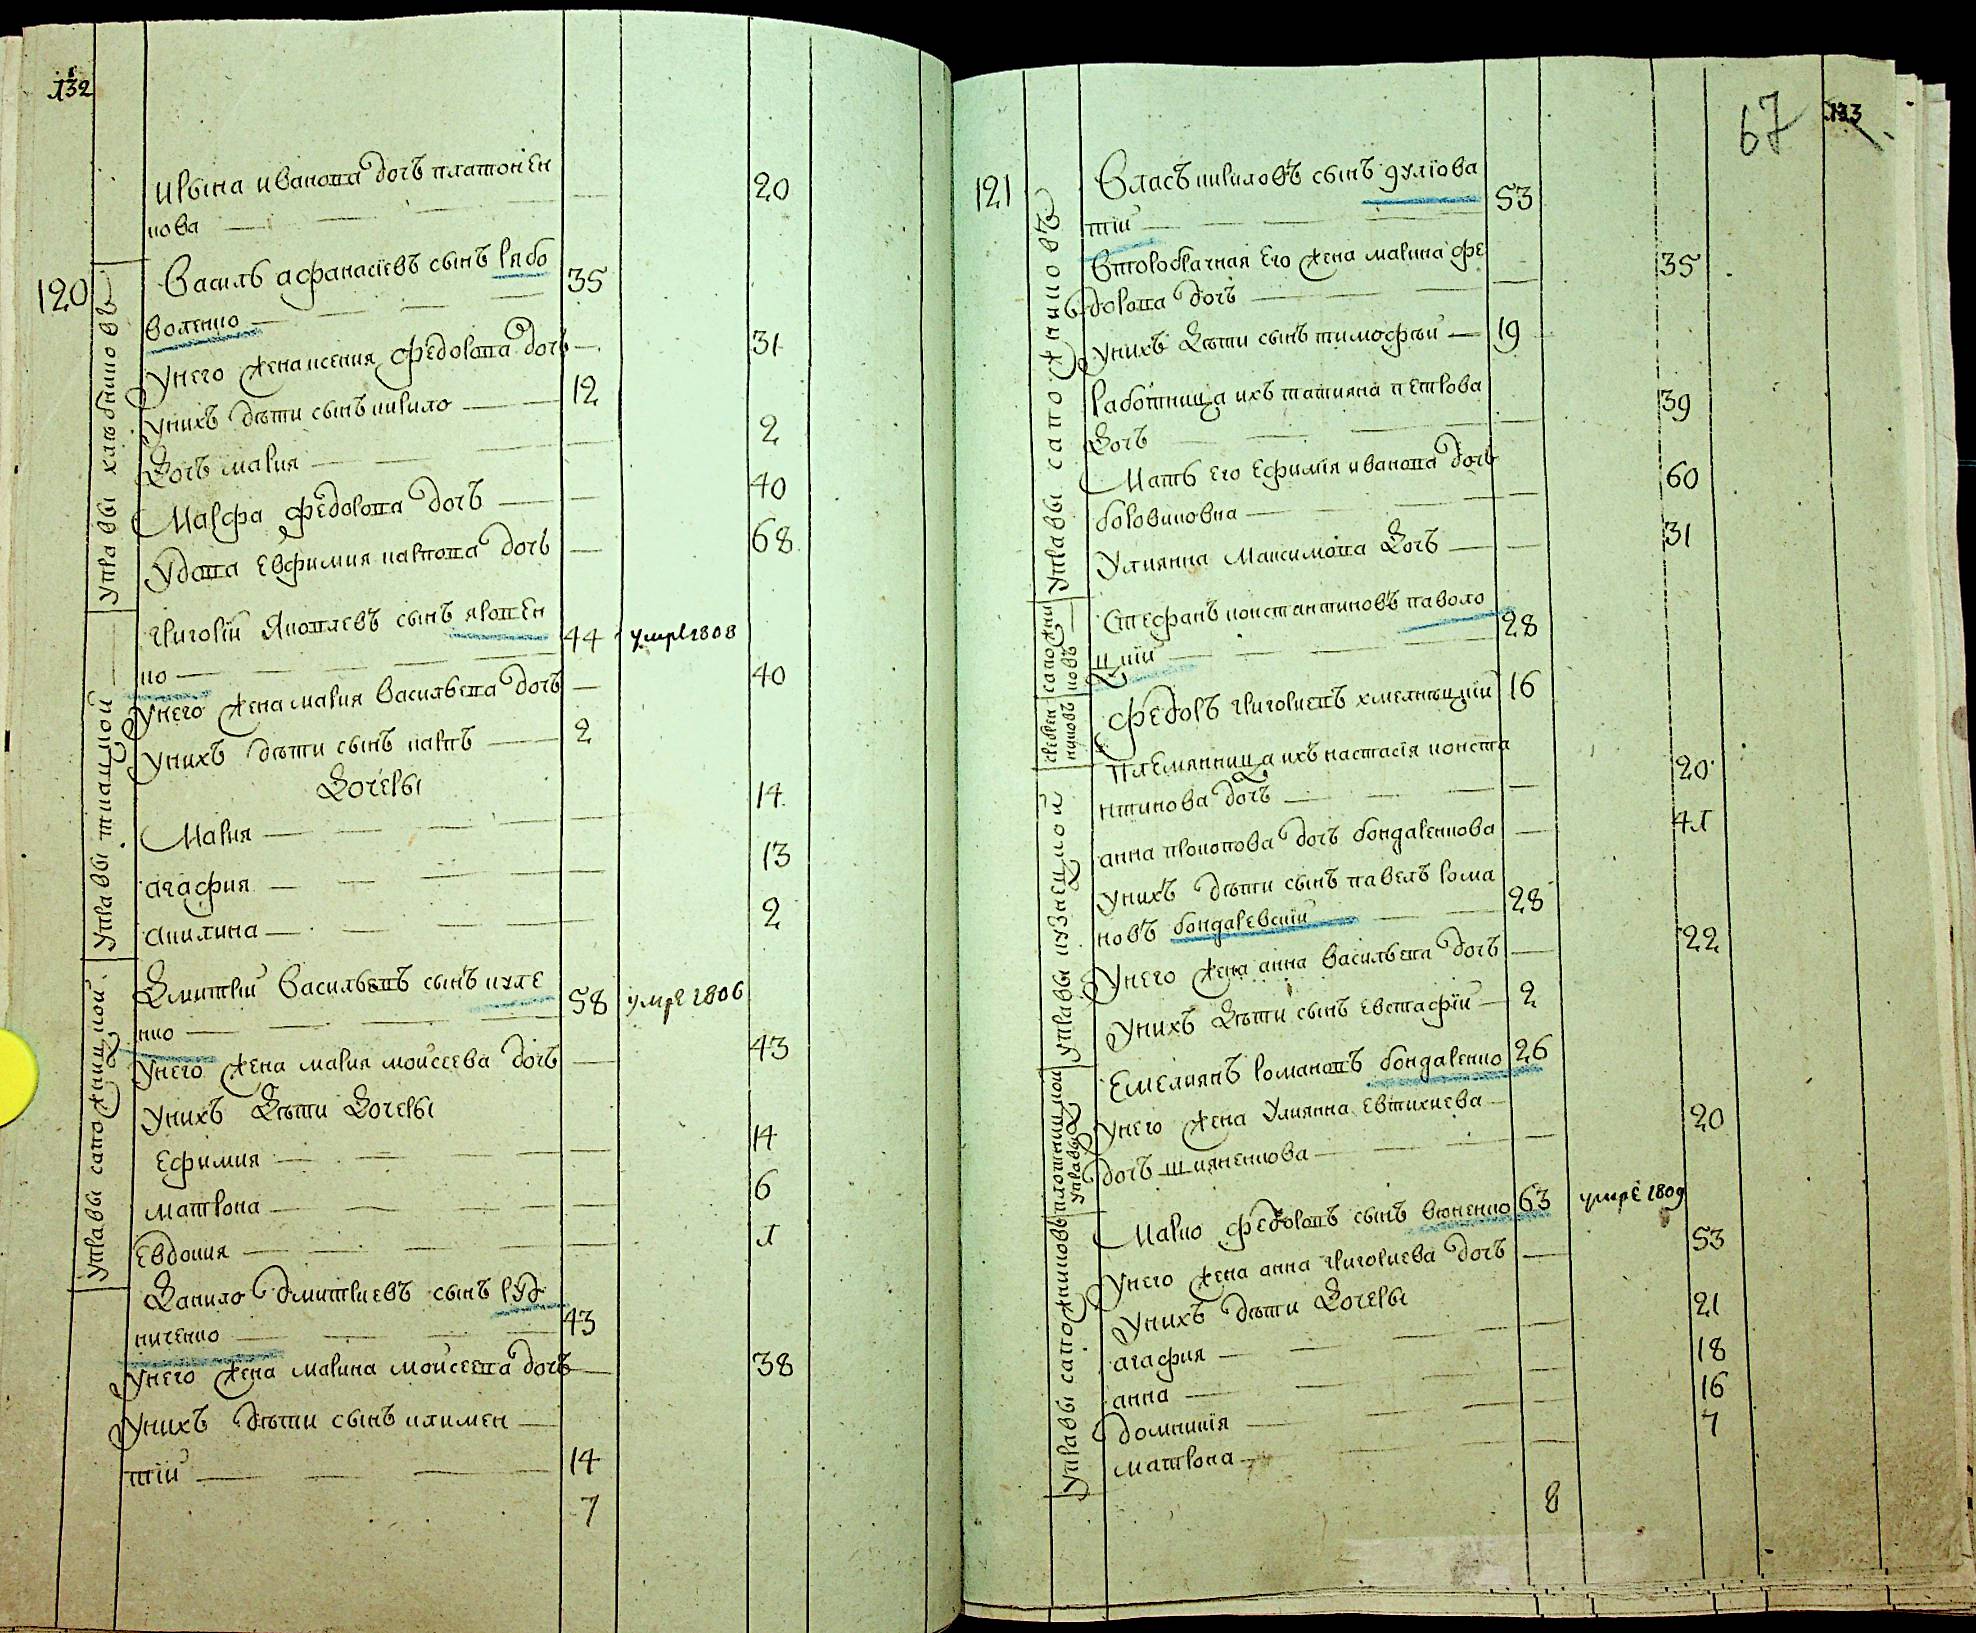 132
Ирына иванова дочъ платонен
кова 20
120
управы хлѣбниковъ
Василь афанасіевъ сынъ рябо
воленко 35
унего жена ксения федорова дочъ 31
унихъ дѣти сынъ кирило 12
Дочъ мария 2
Марфа федорова дочъ 40
удова евфимия карпова дочъ 68
управы ткацкой
григорій яковлевъ сынъ яропен
ко 44 умре 1808
унего жена мария васильева дочъ 40
унихъ дѣти сынъ карпъ 2
Дочеры
Мария 14
агафия 13
акилина 2
управы сапожницкой
Дмитрій васильевъ сынъ куле
нко 58 умре 1806
унего жена мария моисеева дочъ 43
унихъ Дѣти Дочеры
Ефимия 14
матрона 6
Евдокия 1
Данило дмитриевъ сынъ руд
ниченко 43
унего жена марина моисеева дочъ 38
унихъ дѣти сынъ климен
тій 14
7
67
133
121
управы сапожниковъ
Власъ кириловъ сынъ
тій 53
второбрачная его жена марина фе
дорова дочъ 35
унихъ Дѣти сынъ тимофѣй 19
работница ихъ татияна петрова
Дочъ 39
Мать его Ефимія иванова дочъ
боровиковна 60
Улиянна Максимова Дочъ 31
сапожни
ковъ
Стефанъ константиновъ паволо
цкій 28
Федоръ григориевъ хмелницкій 16
племянница ихъ настасія конста
нтинова дочъ 20
управы кузнецкой
анна прокопова дочъ бондаренкова 41
унихъ дѣти сынъ павелъ рома
новъ бондаревскій 28
Унего жена анна васильева дочъ 22
унихъ Дѣти сынъ евстафій 2
управы
плотницкой
Емелиянъ романовъ бондаренко 26
унего жена улиянна евтихиева
дочъ шияненкова 20
управы сапожниковъ
Марко федоровъ сынъ вюненко 63 умре 1809
унего жена анна григориева дочъ 53
унихъ дѣти Дочеры
агафия 21
анна 18
домникія 16
матрона 7
8